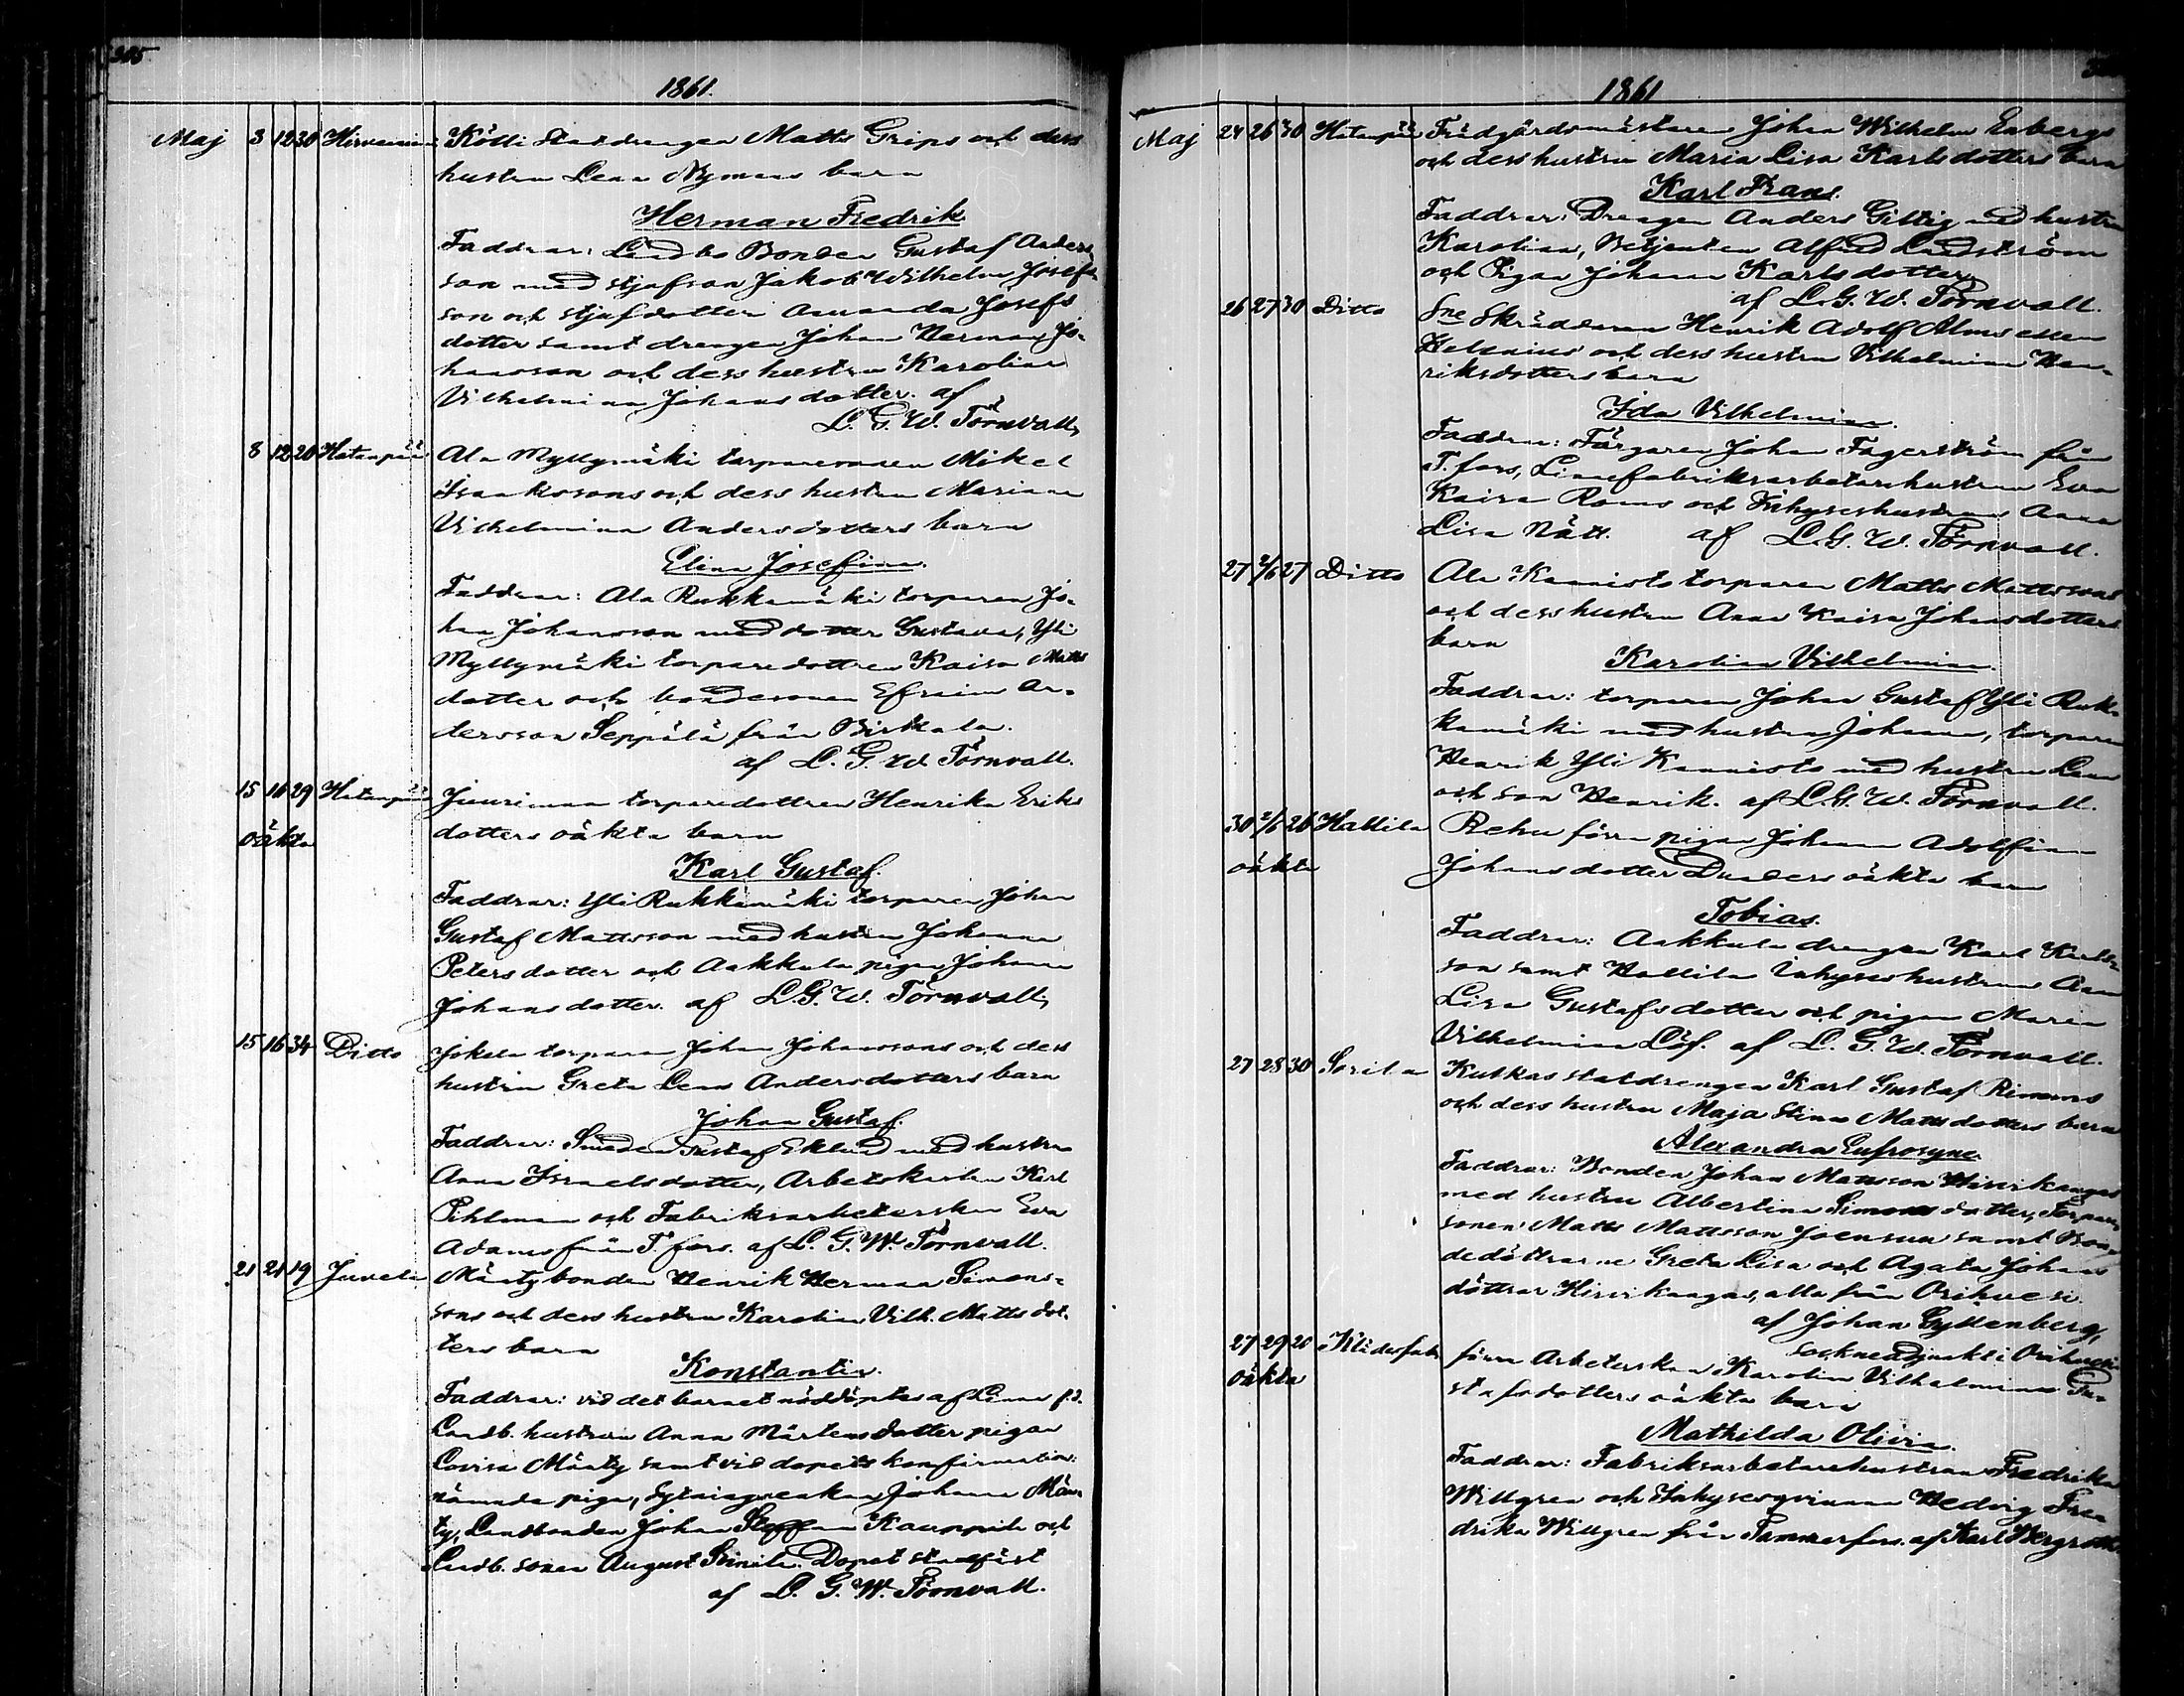 305
1861.
Maj 3 12 30 Hirveniemi Kötti Statdrengen Matts Grips och dess
hustru Lena Nymans barn
Herman Fredrik
Faddrar: Landbo Bonden Gustaf Anders
son med stjufson Jakob Wilhelm Josefs
son och stjufdotter Amanda Josefs
dotter samt drengen Johan Herman Jo-
hansson och dess hustru Karolina
Vilhelmina Johansdotter. af
L. G. W. Törnvall,
8 12 20 Hatanpää Ala Myllymäki torparesonen Mikel
Isaakssons och dess hustru Mariana
Vilhelmina Andersdotters barn
Elina Josefina.
Faddrar: Ala Rukkamäki torparen Jo-
han Johansson med dotter Gustava, Yli
Myllymäki torparedottren Kaisa Matts
dotter och bondesonen Efraim An-
dersson Seppälä från Birkala.
af L. G. W. Törnvall.
15 16 29 Hatanpää Juurimaa torparedottren Henrika Eriks
oäkta dotters oäkta barn
Karl Gustaf.
Faddrar: Yli Rukkamäki torparen Johan
Gustaf Mattsson med hustru Johanna
Petersdotter och Aakkula pigan Johanna
Johansdotter. af L. G. W. Törnvall,
15 16 34 Ditto Jokela torparen Johan Johanssons och dess
hustru Greta Lena Andersdotters barn
Johan Gustaf.
Faddrar: Smeden Gustaf Eklund med hustru
Anna Israelsdotter, Arbetskarlen Karl
Pihlman och Fabriksarbeterskan Eva
Adams från T.fors. af L. G. W. Törnvall.
21 21 19 Juvela Mäntybonden Henrik Herman Simons-
sons och dess hustru Karolina Vilh. Matts dot-
ters barn
Konstantin.
Faddrar: vid det barnet nöddöptes af Linna f.d.
Landb. hustrun Anna Mårtensdotter pigan
Lovisa Mänty samt vid dopets konfirmation:
nämnda piga, Sytningsenkan Johanna Män-
ty, Landbonden Johan Steffan Kauppila och
Landb. sonen August Soinila. Dopet stadfäst
af L. G. W. Törnvall.
1861
Maj 24 26 30 Hatanpää Trädgårdsmästaren Johan Wilhelm Enbergs
och dess hustru Maria Lisa Karlsdotters barn
Karl Frans.
Faddrar: Drengen Anders Gittig med hustru
Karolina, Betjenten Alfred Lindström
och Pigan Johanna Karlsdotter,
af L. G. W. Törnvall.
26 27 30 Ditto Sne Skräddaren Henrik Adolf Alms eller
Helenius och dess hustru Vilhelmina Hen-
riksdotters barn
Ida Vilhelmina.
Faddrar: Färgaren Johan Fagerström från
T.fors, Linnefabriksarbetarehustrun Eva
Kaisa Roms och Inhyseshustrun Anna
Lisa Nätt. af L. G. W. Törnvall.
27 2/6 27 Ditto Ala Kaanisto torparen Matts Mattssons
och dess hustru Anna Kaisa Johansdotters
barn
Karolina Vilhelmina.
Faddrar: torparen Johan Gustaf Yli Ruk-
kamäki med hustru Johanna, torparen
Henrik Yli Kaanisto med hustru Lena
och son Henrik. af L. G. W. Törnvall.
30 2/6 26 Hallila Rehu förra pigan Johanna Adolfina
oäkta Johansdotter Dunders oäkta barn
Tobias.
Faddrar: Aakkula drengen Karl Karls-
son samt Hallila Inhyseshustrun Anna
Lisa Gustafsdotter och pigan Maria
Vilhelmina Löf. af L. G. W. Törnvall.
27 28 30 Sorila Kutkas statdrengen Karl Gustaf Rimons
och dess hustru Maja Stina Mattsdotters barn
Alexandra Eufrosyne.
Faddrar: Bonden Johan Mattsson Hirvikangas
med hustru Albertina Simonsdotter, Torpare
sonen Matts Mattsson Joensuu samt Bon-
dedöttrarne Greta Lisa och Agata Johans
döttrar Hirvikangas, alla från Orihvesi.
af Johan Gyllenberg,
sockneadjunkt i Orihvesi
27 29 20 Klädesfabr. förra Arbeterskan Karolina Vilhelmina Gu-
oäkta stafsdotters oäkta barn
Mathilda Olivia.
Faddrar: Fabriksarbetarehustrun Fredrika
Willgren och Inhysesqvinnan Hedvig Fre-
drika Willgren från Tammerfors. af Karl Bergroth.